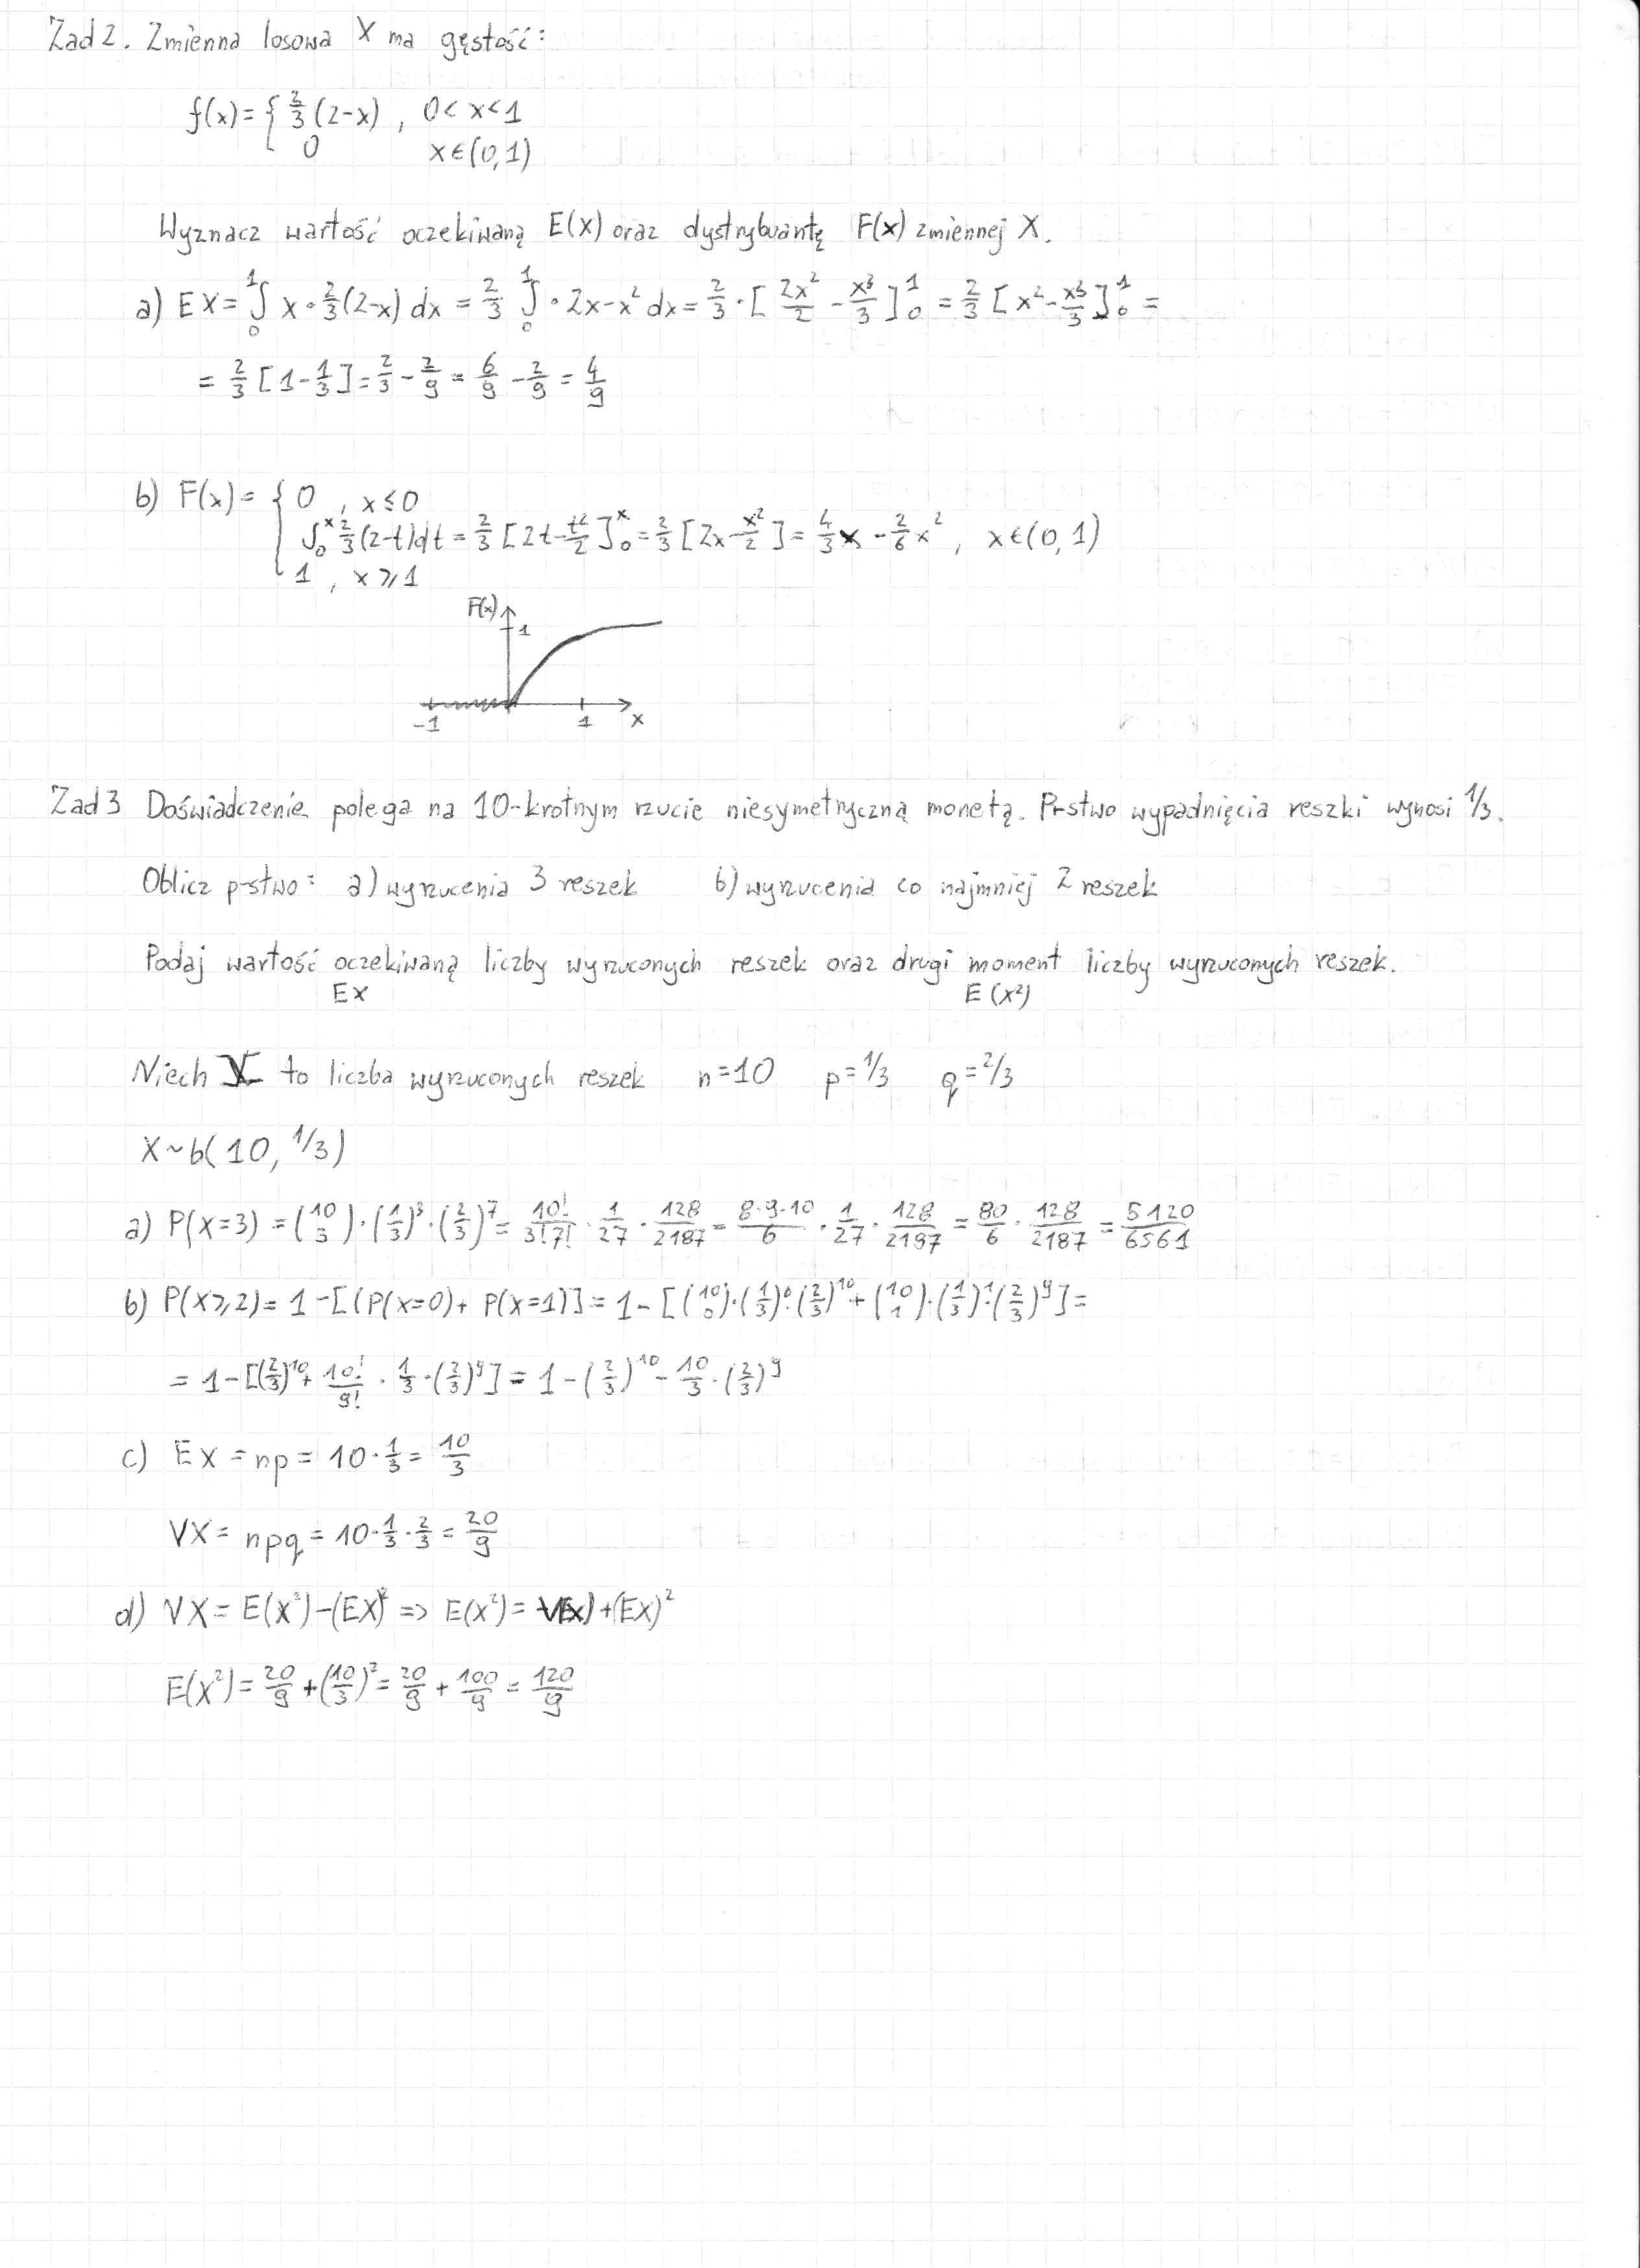 Zad 2. Zmienna losowa X ma gęstość:
f(x)= { 2/3 (2-x) , 0 < x < 1
0 x ∈ (0,1)
Wyznacz wartość oczekiwaną E(X) oraz dystrybuantę F(x) zmiennej X.
a) EX = ∫₀¹ x · 2/3 (2-x) dx = 2/3 ∫₀¹ · 2x-x² dx = 2/3 · [ 2x²/2 - x³/3 ]₀¹ = 2/3 [ x² - x³/3 ]₀¹ =
= 2/3 [ 1 - 1/3 ] = 2/3 - 2/9 = 6/9 - 2/9 = 4/9
b) F(x) = { 0 , x ≤ 0
∫₀ˣ 2/3 (2-t) dt = 2/3 [ 2t - t²/2 ]₀ˣ = 2/3 [ 2x - x²/2 ] = 4/3 x - 2/6 x² , x ∈ (0,1)
1 , x ⩾ 1
F(x)
1
-1 1 x
Zad 3 Doświadczenie polega na 10-krotnym rzucie niesymetryczną monetą. Pr-stwo wypadnięcia reszki wynosi 1/3.
Oblicz p-stwo: a) wyrzucenia 3 reszek b) wyrzucenia co najmniej 2 reszek
Podaj wartość oczekiwaną liczby wyrzuconych reszek oraz drugi moment liczby wyrzuconych reszek.
EX E(X²)
Niech X to liczba wyrzuconych reszek n=10 p=1/3 q=2/3
X ~ b(10, 1/3)
a) P(X=3) = (10 3) · (1/3)³ · (2/3)⁷ = 10!/3!7! · 1/27 · 128/2187 = 8·9·10/6 · 1/27 · 128/2187 = 80/6 · 128/2187 = 5120/6561
b) P(X⩾2) = 1 - [(P(X=0) + P(X=1)] = 1 - [(10 0) · (1/3)⁰ · (2/3)¹⁰ + (10 1) · (1/3)¹ · (2/3)⁹] =
= 1 - [(2/3)¹⁰ + 10!/9! · 1/3 · (2/3)⁹] = 1 - (2/3)¹⁰ - 10/3 · (2/3)⁹
c) EX = np = 10 · 1/3 = 10/3
VX = npq = 10 · 1/3 · 2/3 = 20/9
d) VX = E(X²) - (EX)² => E(X²) = V(X) + (EX)²
E(X²) = 20/9 + (10/3)² = 20/9 + 100/9 = 120/9